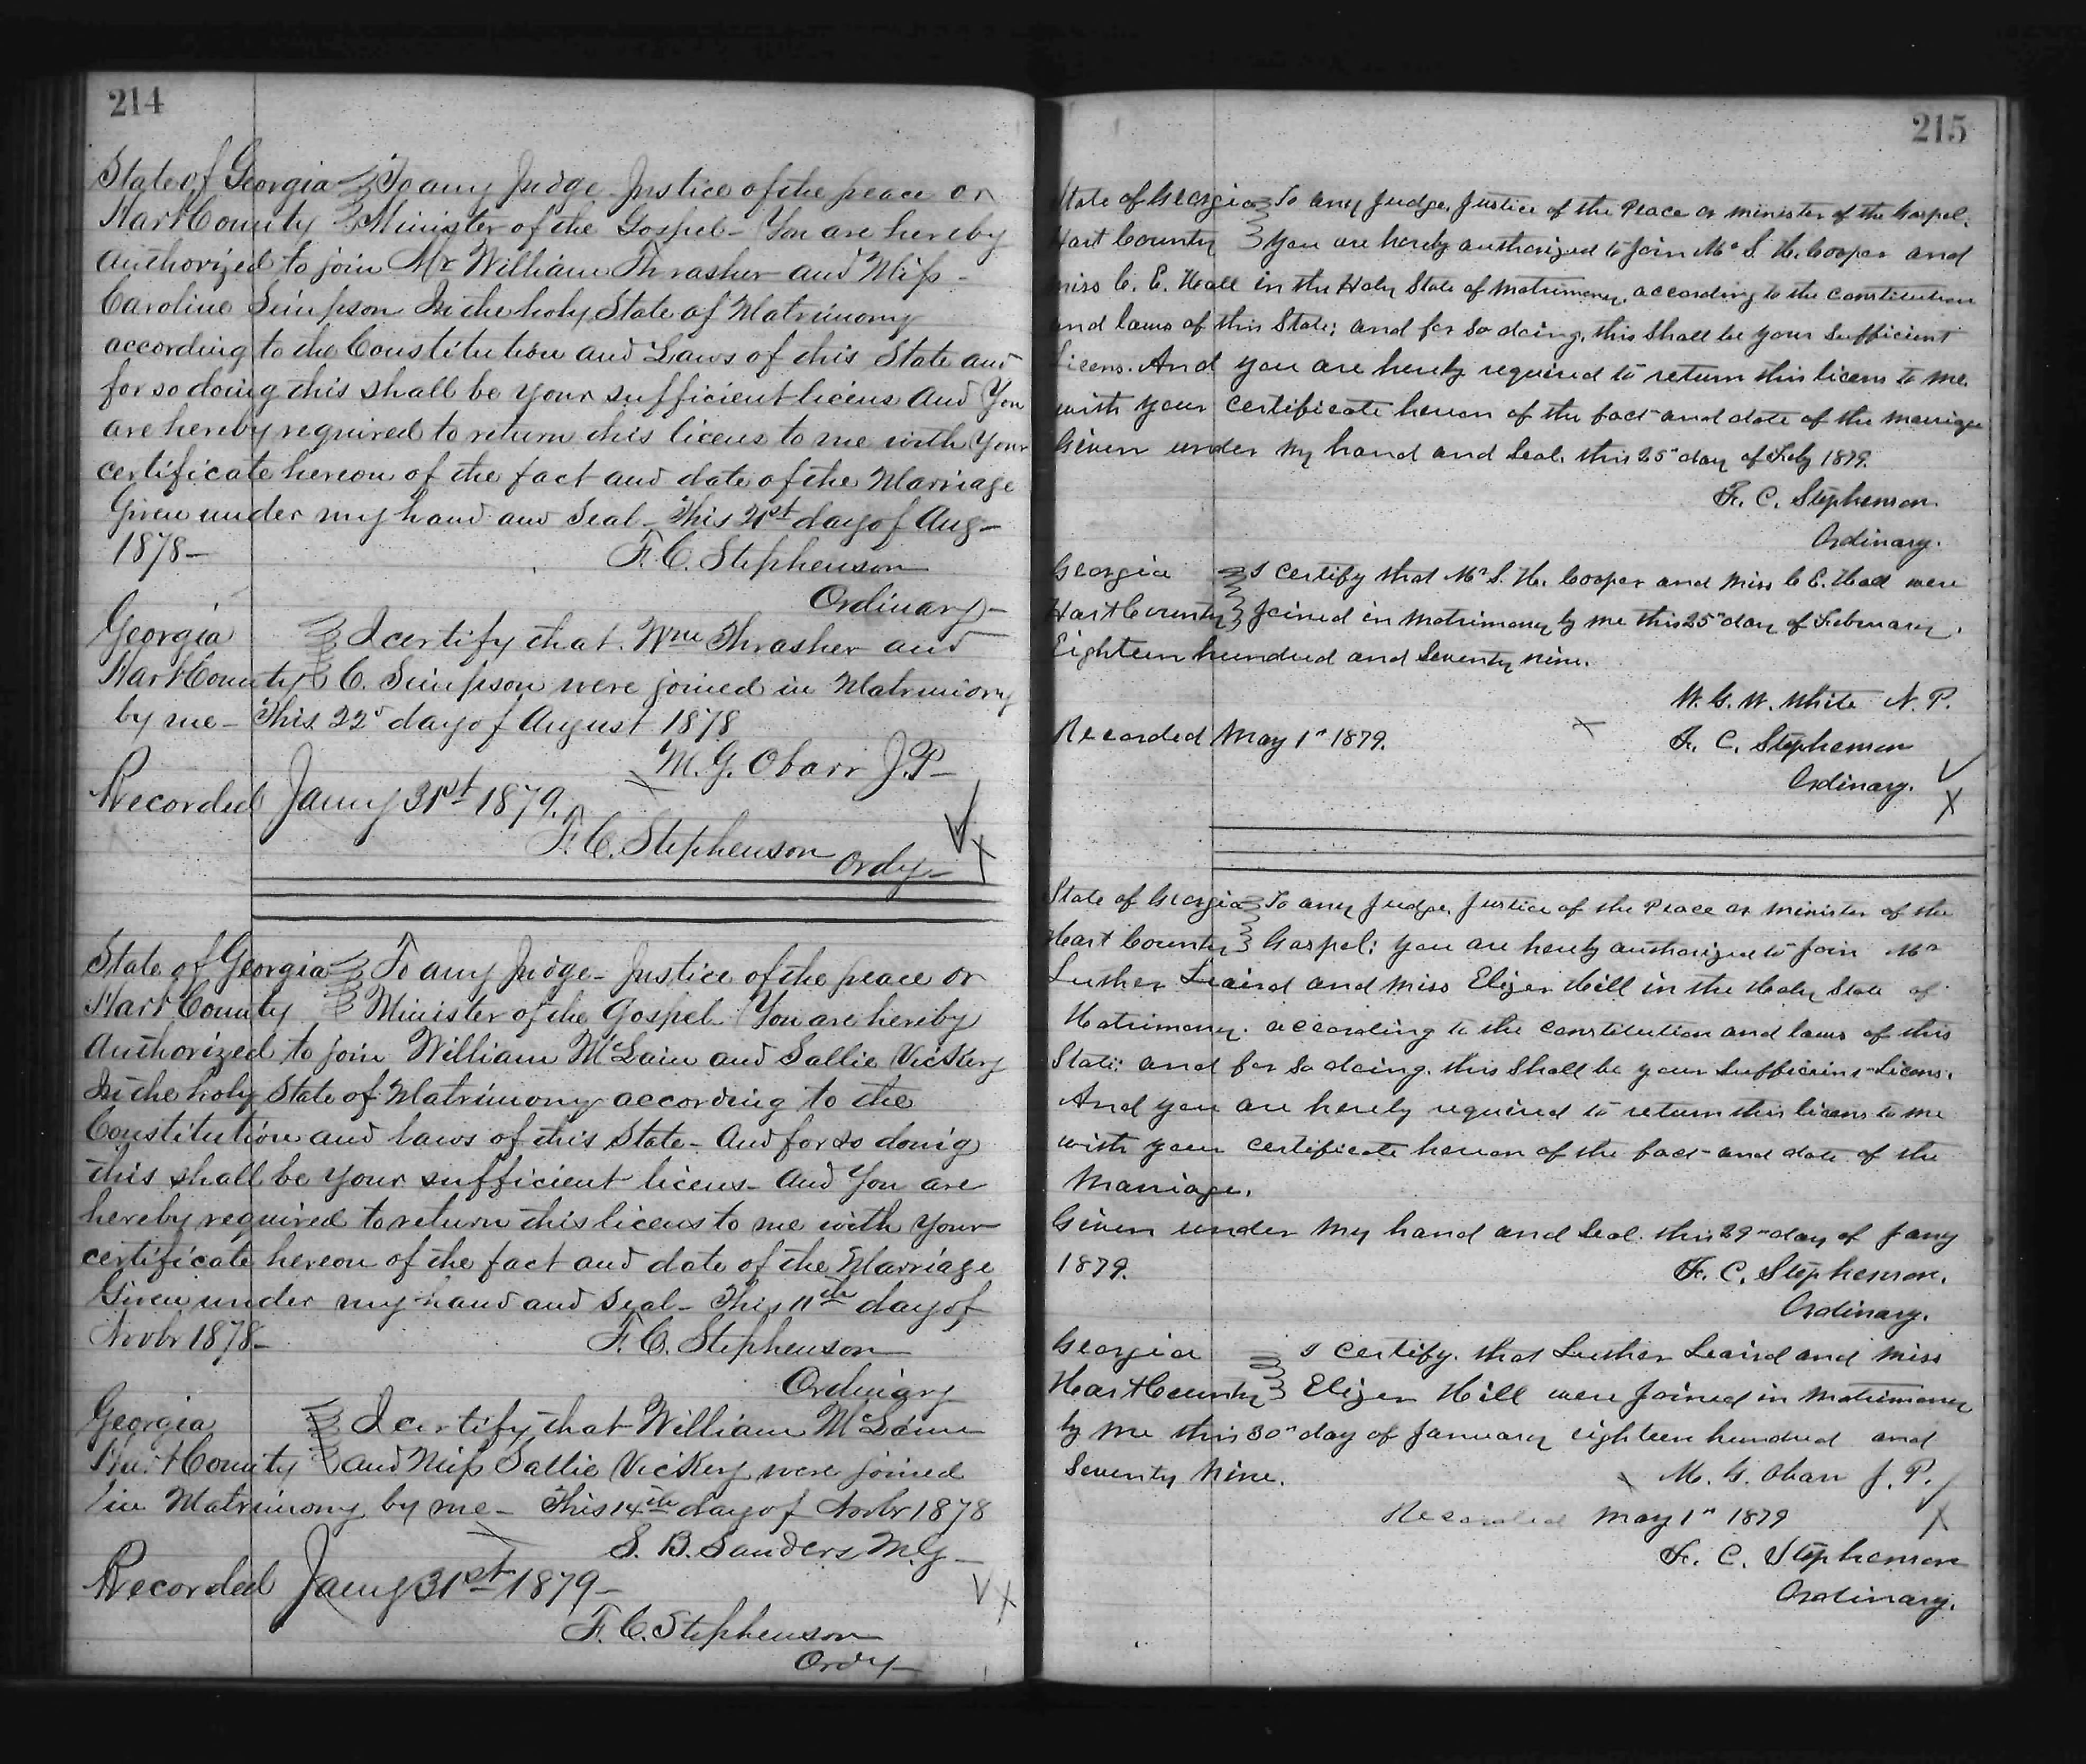 214
State of Georgia To any Judge Justice of the peace or
Hart County Minister of the Gospel - You are hereby
authorized to join Mr William Thrasher and Miss
Caroline Simpson In the holy State of Matrimony
according to the Constitution and Laws of this State and
for so doing this shall be your sufficient licens and You
are hereby required to return this licens to me with Your
certificate hereon of the fact and date of the Marriage
Given under my hand and Seal - This 21st day of Aug -
1878 - F. C. Stephenson
Ordinary -
Georgia I certify that Wm Thrasher and
Hart County C. Simpson were joined in Matrimony
by me - This 22d day of August 1878
M. G. Obarr J.P -
Recorded Jany 31st 1879.
F. C. Stephenson
Ordy -
State of Georgia To any Judge - Justice of the peace or
Hart County Minister of the Gospel You are hereby
authorized to join William McLain and Sallie Vickery
In the holy State of Matrimony according to the
Constitution and laws of this State - And for so doing
this shall be your sufficient licens - And You are
hereby required to return this licens to me with your
certificate hereon of the fact and date of the Marriage
Given under my hand and Seal - This 11th day of
Novbr 1878 - F. C. Stephenson
Ordinary
Georgia I certify that William McLain
Hart County and Miss Sallie Vickery were joined
in Matrimony by me - This 14th day of Novbr 1878
S. B. Sanders M.G -
Recorded Jany 31st 1879 -
F. C. Stephenson
Ordy -
215
State of Georgia To any Judge, Justice of the Peace or minister of the Gospel.
Hart County You are hereby authorized to join Mr S. H. Cooper and
miss C. E. Hall in the Holy State of Matrimony, according to the constitution
and laws of this State; and for so doing, this shall be your sufficient
Licens. And you are hereby required to return this licens to me
with your certificate hereon of the fact and date of the marrige
Given under my hand and seal, this 25" day of Feby 1879.
F. C. Stephenson
Ordinary.
Georgia I certify that Mr S. H. Cooper and Miss C E. Hall were
Hart County joined in matrimony by me this 25" day of February,
Eighteen hundred and Seventy nine.
W. G. W. White N. P.
Recorded May 1" 1879. F. C. Stephenson
Ordinary.
State of Georgia To any Judge, Justice of the Peace or minister of the
Hart County Gospel: you are hereby authorized to join Mr
Luther Leaird and miss Elizer Hill in the Holy State of
Matrimony. according to the constitution and laws of this
State: and for so doing, this shall be your sufficient Licens.
And you are hereby required to return this licens to me
with your certificate hereon of the fact and date of the
Marriage.
Given under my hand and seal. this 29" day of Jany
1879. F. C. Stephenson.
Ordinary.
Georgia I certify, that Luther Leaird and miss
Hart County Elizer Hill were joined in matrimony
by me this 30" day of January eighteen hundred and
Seventy Nine. M. G. Obarr J. P.
Recorded May 1" 1879
F. C. Stephenson
Ordinary.